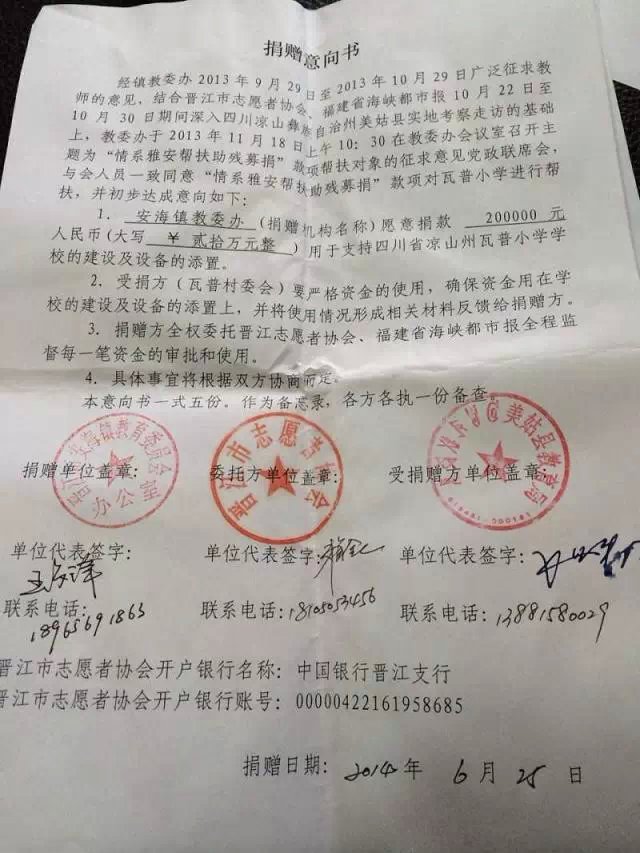 捐赠意向书
经镇教委办2013年9月29日至2013年10月29日广泛征求教
师的意见，结合晋江市志愿者协会、福建省海峡都市报10月22日至
10月30日期间深入四川凉山彝族自治州美姑县实地考察走访的基础
上，教委办于2013年11月18日上午10：30在教委办会议室召开主
题为“情系雅安帮扶助残募捐”款项帮扶对象的征求意见党政联席会，
与会人员一致同意“情系雅安帮扶助残募捐”款项对瓦普小学进行帮
扶，并初步达成意向如下：
1. 安海镇教委办（捐赠机构名称）愿意捐款 200000 元
人民币（大写 ￥ 贰拾万元整 ）用于支持四川省凉山州瓦普小学学
校的建设及设备的添置。
2. 受捐方（瓦普村委会）要严格资金的使用，确保资金用在学
校的建设及设备的添置上，并将使用情况形成相关材料反馈给捐赠方。
3. 捐赠方全权委托晋江志愿者协会、福建省海峡都市报全程监
督每一笔资金的审批和使用。
4. 具体事宜将根据双方协商而定。
本意向书一式五份。作为备忘录，各方各执一份备查。
晋江市安海镇教育委员会 晋江市志愿者协会 美姑县教育局
捐赠单位盖章： 委托方单位盖章： 受捐赠方单位盖章：
办公室
单位代表签字： 单位代表签字： 单位代表签字：
联系电话： 联系电话：18105053456 联系电话：13881580029
18965691863
晋江市志愿者协会开户银行名称：中国银行晋江支行
晋江市志愿者协会开户银行账号：00000422161958685
捐赠日期：2014年 6月 25日